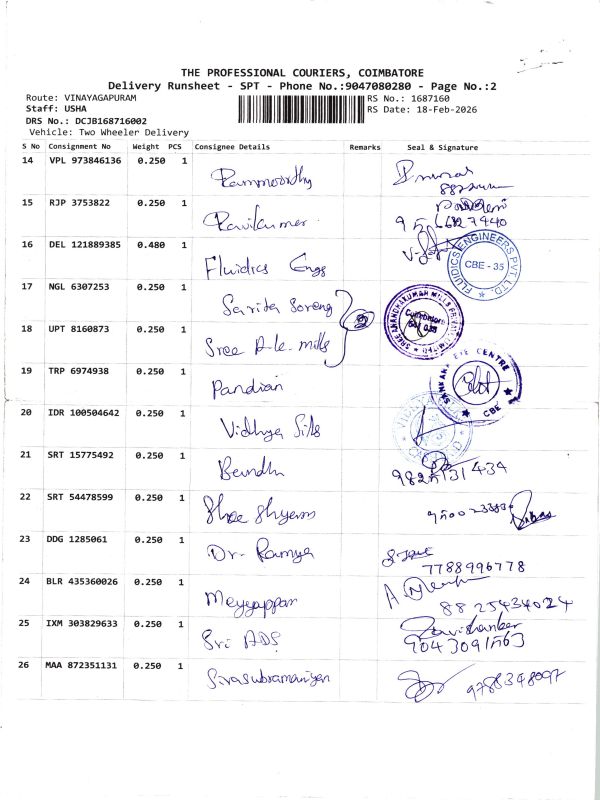 THE PROFESSIONAL COURIERS, COIMBATORE
Delivery Runsheet - SPT - Phone No.:9047080280 - Page No.:2
Route: VINAYAGAPURAM
Staff: USHA
DRS No.: DCJB168716002
Vehicle: Two Wheeler Delivery
RS No.: 1687160
RS Date: 18-Feb-2026
S No Consignment No Weight PCS Consignee Details Remarks Seal & Signature
14 VPL 973846136 0.250 1 Rammoorthy
15 RJP 3753822 0.250 1 Ravikumar
16 DEL 121889385 0.480 1 Fluidics Engg FLUIDICS ENGINEERS PVT. LTD. CBE - 35
17 NGL 6307253 0.250 1 Sarita Soreng
18 UPT 8160873 0.250 1 Sree A.k. mills SREE ANANDHAKUMAR MILLS Coimbatore
19 TRP 6974938 0.250 1 Pandian SANKARA EYE CENTRE CBE
20 IDR 100504642 0.250 1 Vidhya Sills
21 SRT 15775492 0.250 1 Bandhu
22 SRT 54478599 0.250 1 Shree Shyam
23 DDG 1285061 0.250 1 Dr. Ramya 7788996778
24 BLR 435360026 0.250 1 Meyyappan 8825434024
25 IXM 303829633 0.250 1 Sri ADS Ravishanker
26 MAA 872351131 0.250 1 Sivasubramaniyan 9788348097